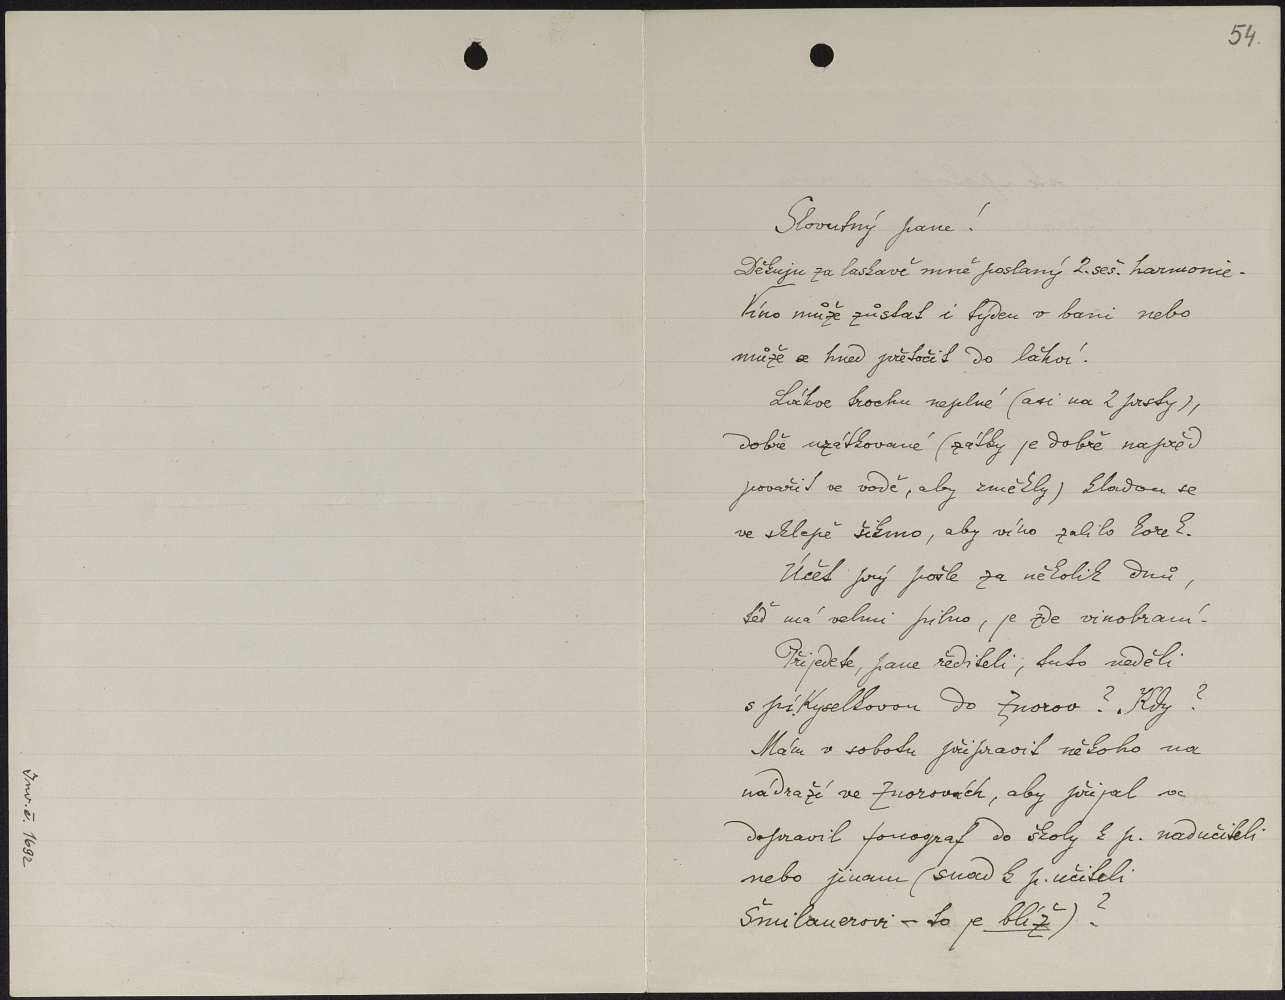 54.
Slovutný pane!
Děkuju za laskavě mně poslaný 2. seš. harmonie.
Víno může zůstat i týden v bani nebo
může se hned přetočit do láhví.
Láhve trochu neplné (asi na 2 prsty),
dobře uzátkované (zátky je dobře napřed
povařit ve vodě, aby změkly) kladou se
ve sklepě šikmo, aby víno zalilo korek.
Účet prý pošle za několik dnů,
teď má velmi pilno, je zde vinobraní.
Přijedete, pane řediteli, tuto neděli
s pí. Kyselkovou do Znorov? Kdy?
Mám v sobotu připravit někoho na
nádraží ve Znorovách, aby přijal a
dopravil fonograf do školy k p. nadučiteli
nebo jinam (snad k p. učiteli
Šmilauerovi – to je blíž)?
Inv. č. 1692